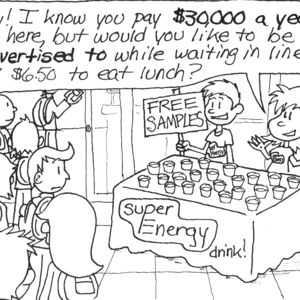 ! I know you pay $30,000 a ye
here, but would you like to be
vertised to while waiting in line
$6.50 to eat lunch?
FREE
SAMPLES
super
Energy
drink!